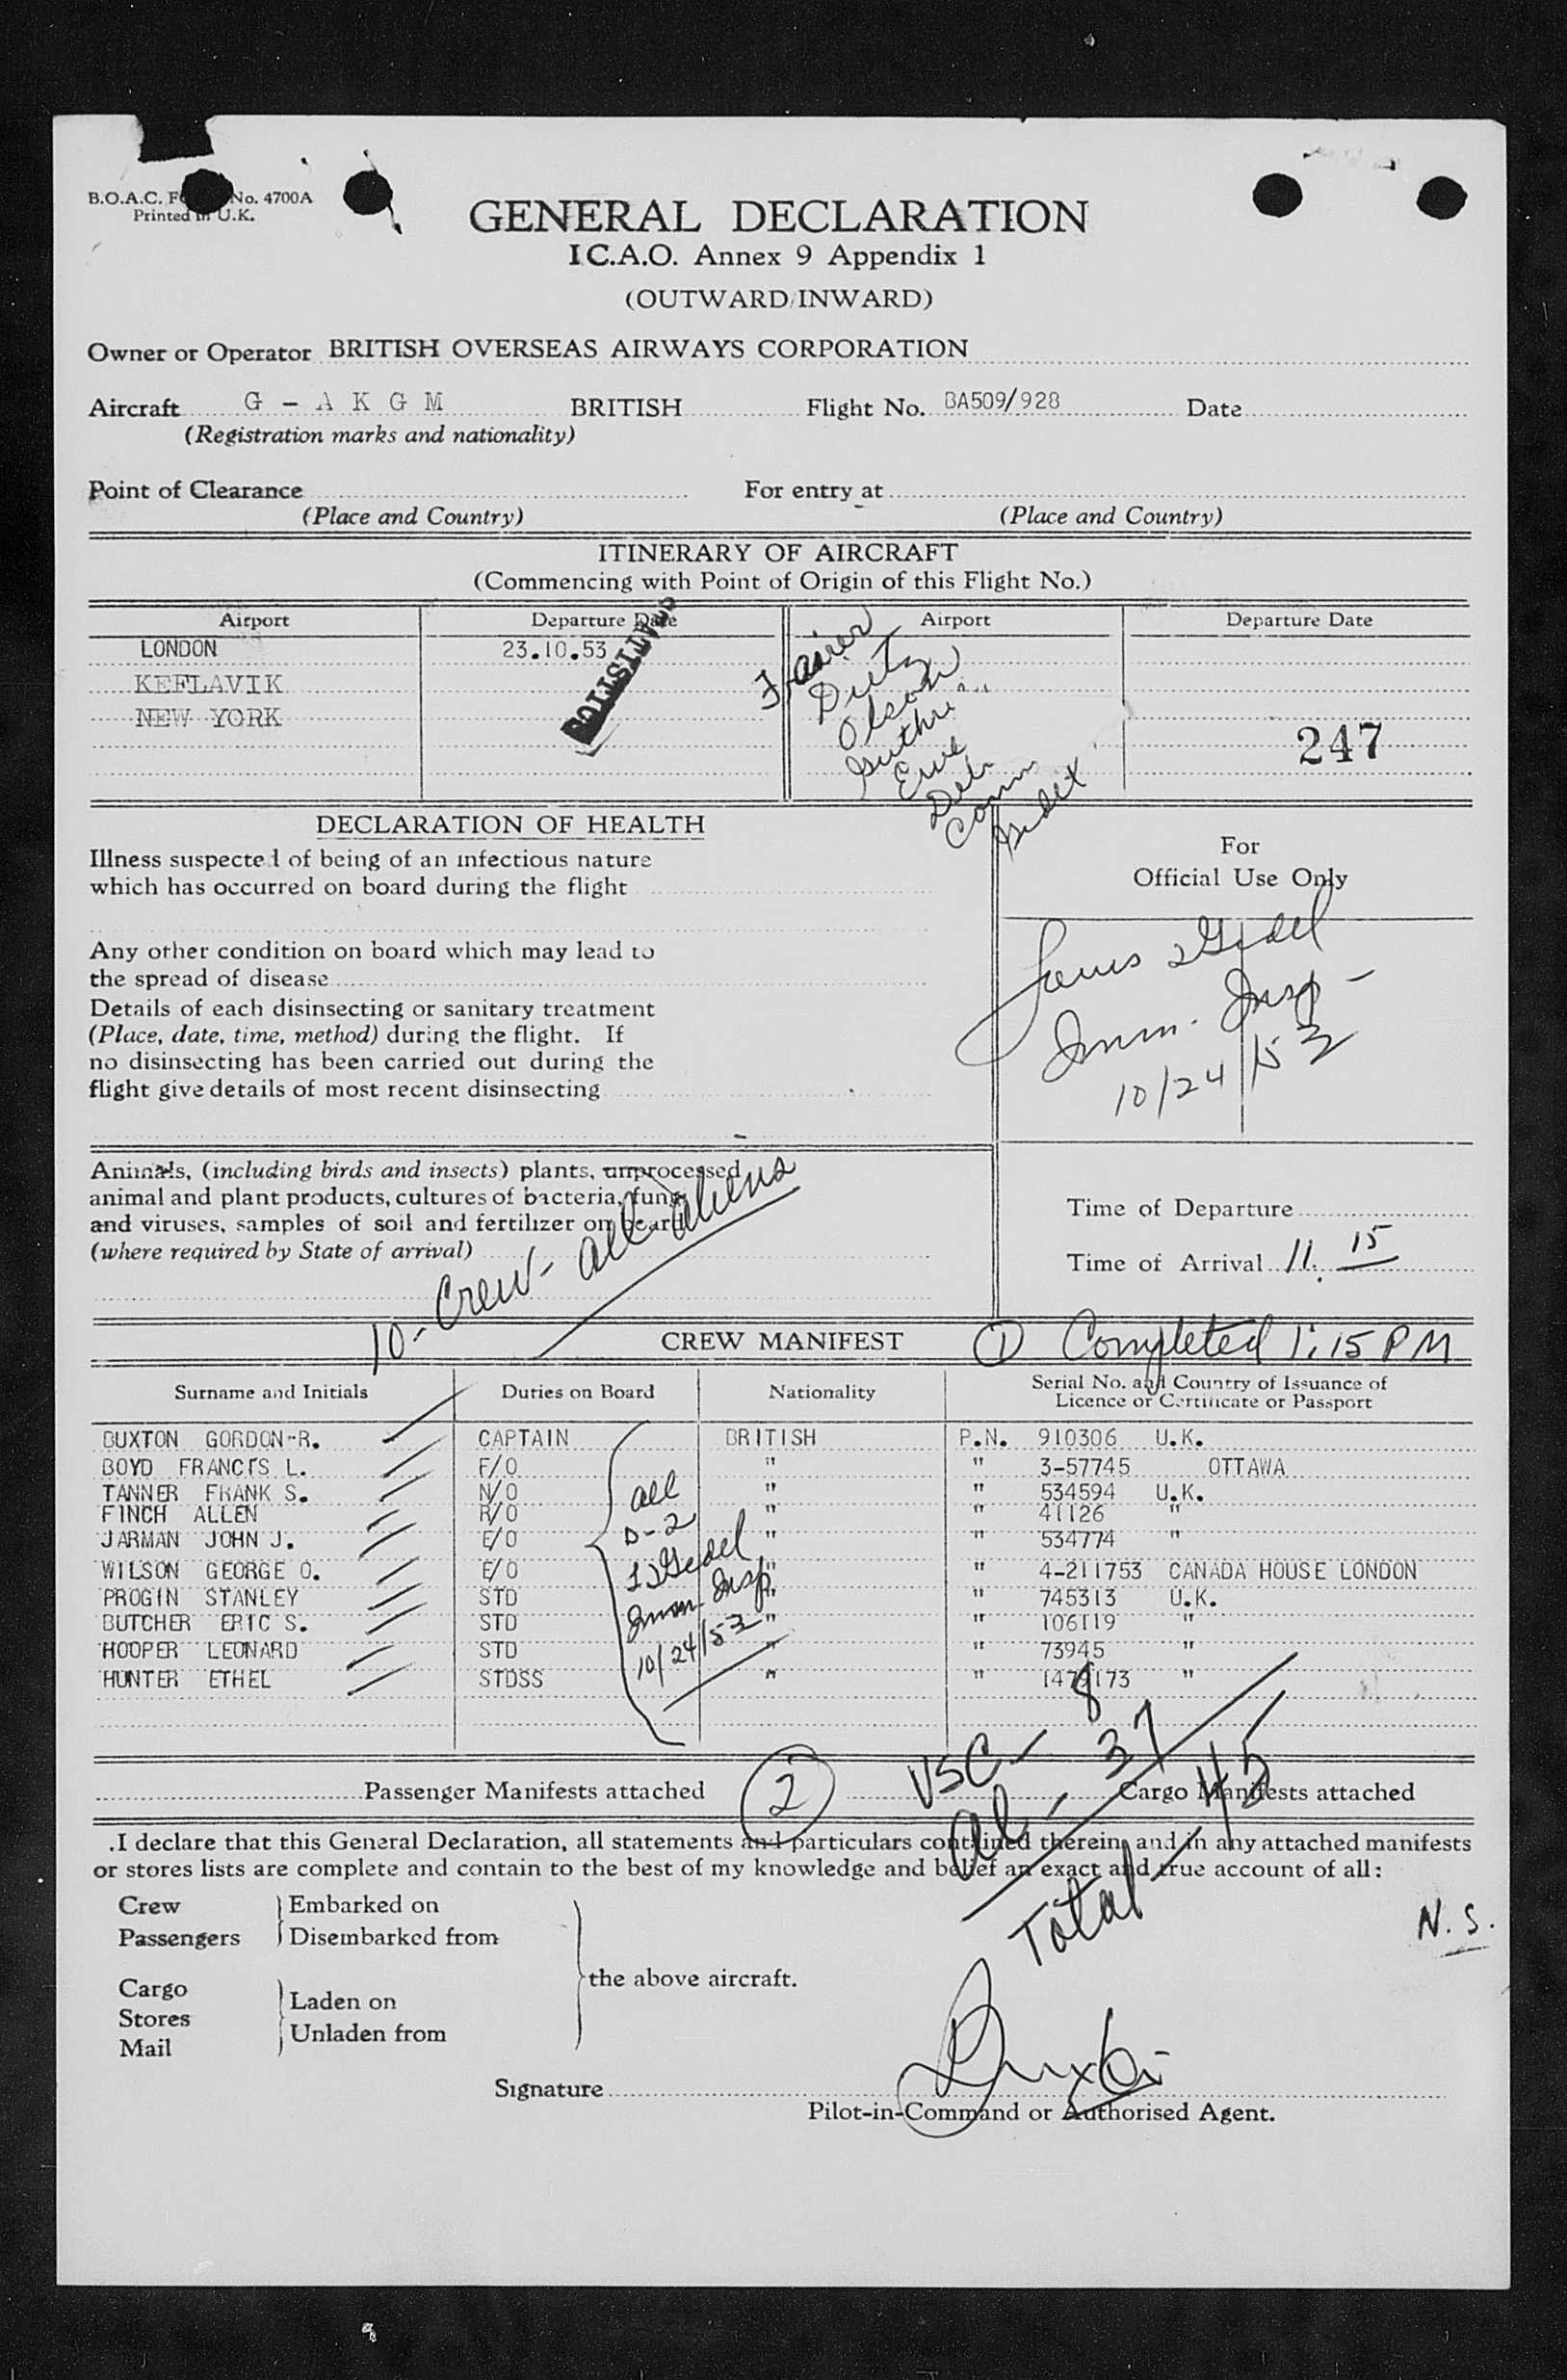 B.O.A.C. No. 4700A
Printed in U.K.
GENERAL DECLARATION
I.C.A.O. Annex 9 Appendix 1
(OUTWARD/INWARD)
Owner or Operator BRITISH OVERSEAS AIRWAYS CORPORATION
Aircraft G - A K G M BRITISH Flight No. BA509/928 Date
(Registration marks and nationality)
Point of Clearance For entry at
(Place and Country) (Place and Country)
ITINERARY OF AIRCRAFT
(Commencing with Point of Origin of this Flight No.)
Airport Departure Date Airport Departure Date
LONDON 23.10.53
KEFLAVIK
NEW YORK
STATISTICS
Dietz
Olson
247
DECLARATION OF HEALTH
Illness suspected of being of an infectious nature
which has occurred on board during the flight
Any other condition on board which may lead to
the spread of disease
Details of each disinsecting or sanitary treatment
(Place, date, time, method) during the flight. If
no disinsecting has been carried out during the
flight give details of most recent disinsecting
For
Official Use Only
Imm. Insp -
10/24/53
Animals, (including birds and insects) plants, unprocessed
animal and plant products, cultures of bacteria, fungi
and viruses, samples of soil and fertilizer on board
(where required by State of arrival)
10 - Crew - all aliens
Time of Departure
Time of Arrival 11.15
CREW MANIFEST
① Completed 1:15 PM
Surname and Initials Duties on Board Nationality Serial No. and Country of Issuance of
Licence or Certificate or Passport
BUXTON GORDON R. CAPTAIN BRITISH P.N. 910306 U.K.
BOYD FRANCIS L. F/O " " 3-57745 OTTAWA
TANNER FRANK S. N/O " " 534594 U.K.
FINCH ALLEN R/O " " 41126 "
JARMAN JOHN J. E/O " " 534774 "
WILSON GEORGE O. E/O " " 4-211753 CANADA HOUSE LONDON
PROGIN STANLEY STD " " 745313 U.K.
BUTCHER ERIC S. STD " " 106119 "
HOOPER LEONARD STD " " 73945 "
HUNTER ETHEL STDSS " " 1479173 "
all
D-2
Imm. Insp
10/24/53
USC - 8
al - 37
Total - 45
Passenger Manifests attached 2 Cargo Manifests attached
I declare that this General Declaration, all statements and particulars contained therein, and in any attached manifests
or stores lists are complete and contain to the best of my knowledge and belief an exact and true account of all:
Crew Embarked on
Passengers Disembarked from
the above aircraft.
Cargo
Stores Laden on
Mail Unladen from
N.S.
Signature
Pilot-in-Command or Authorised Agent.